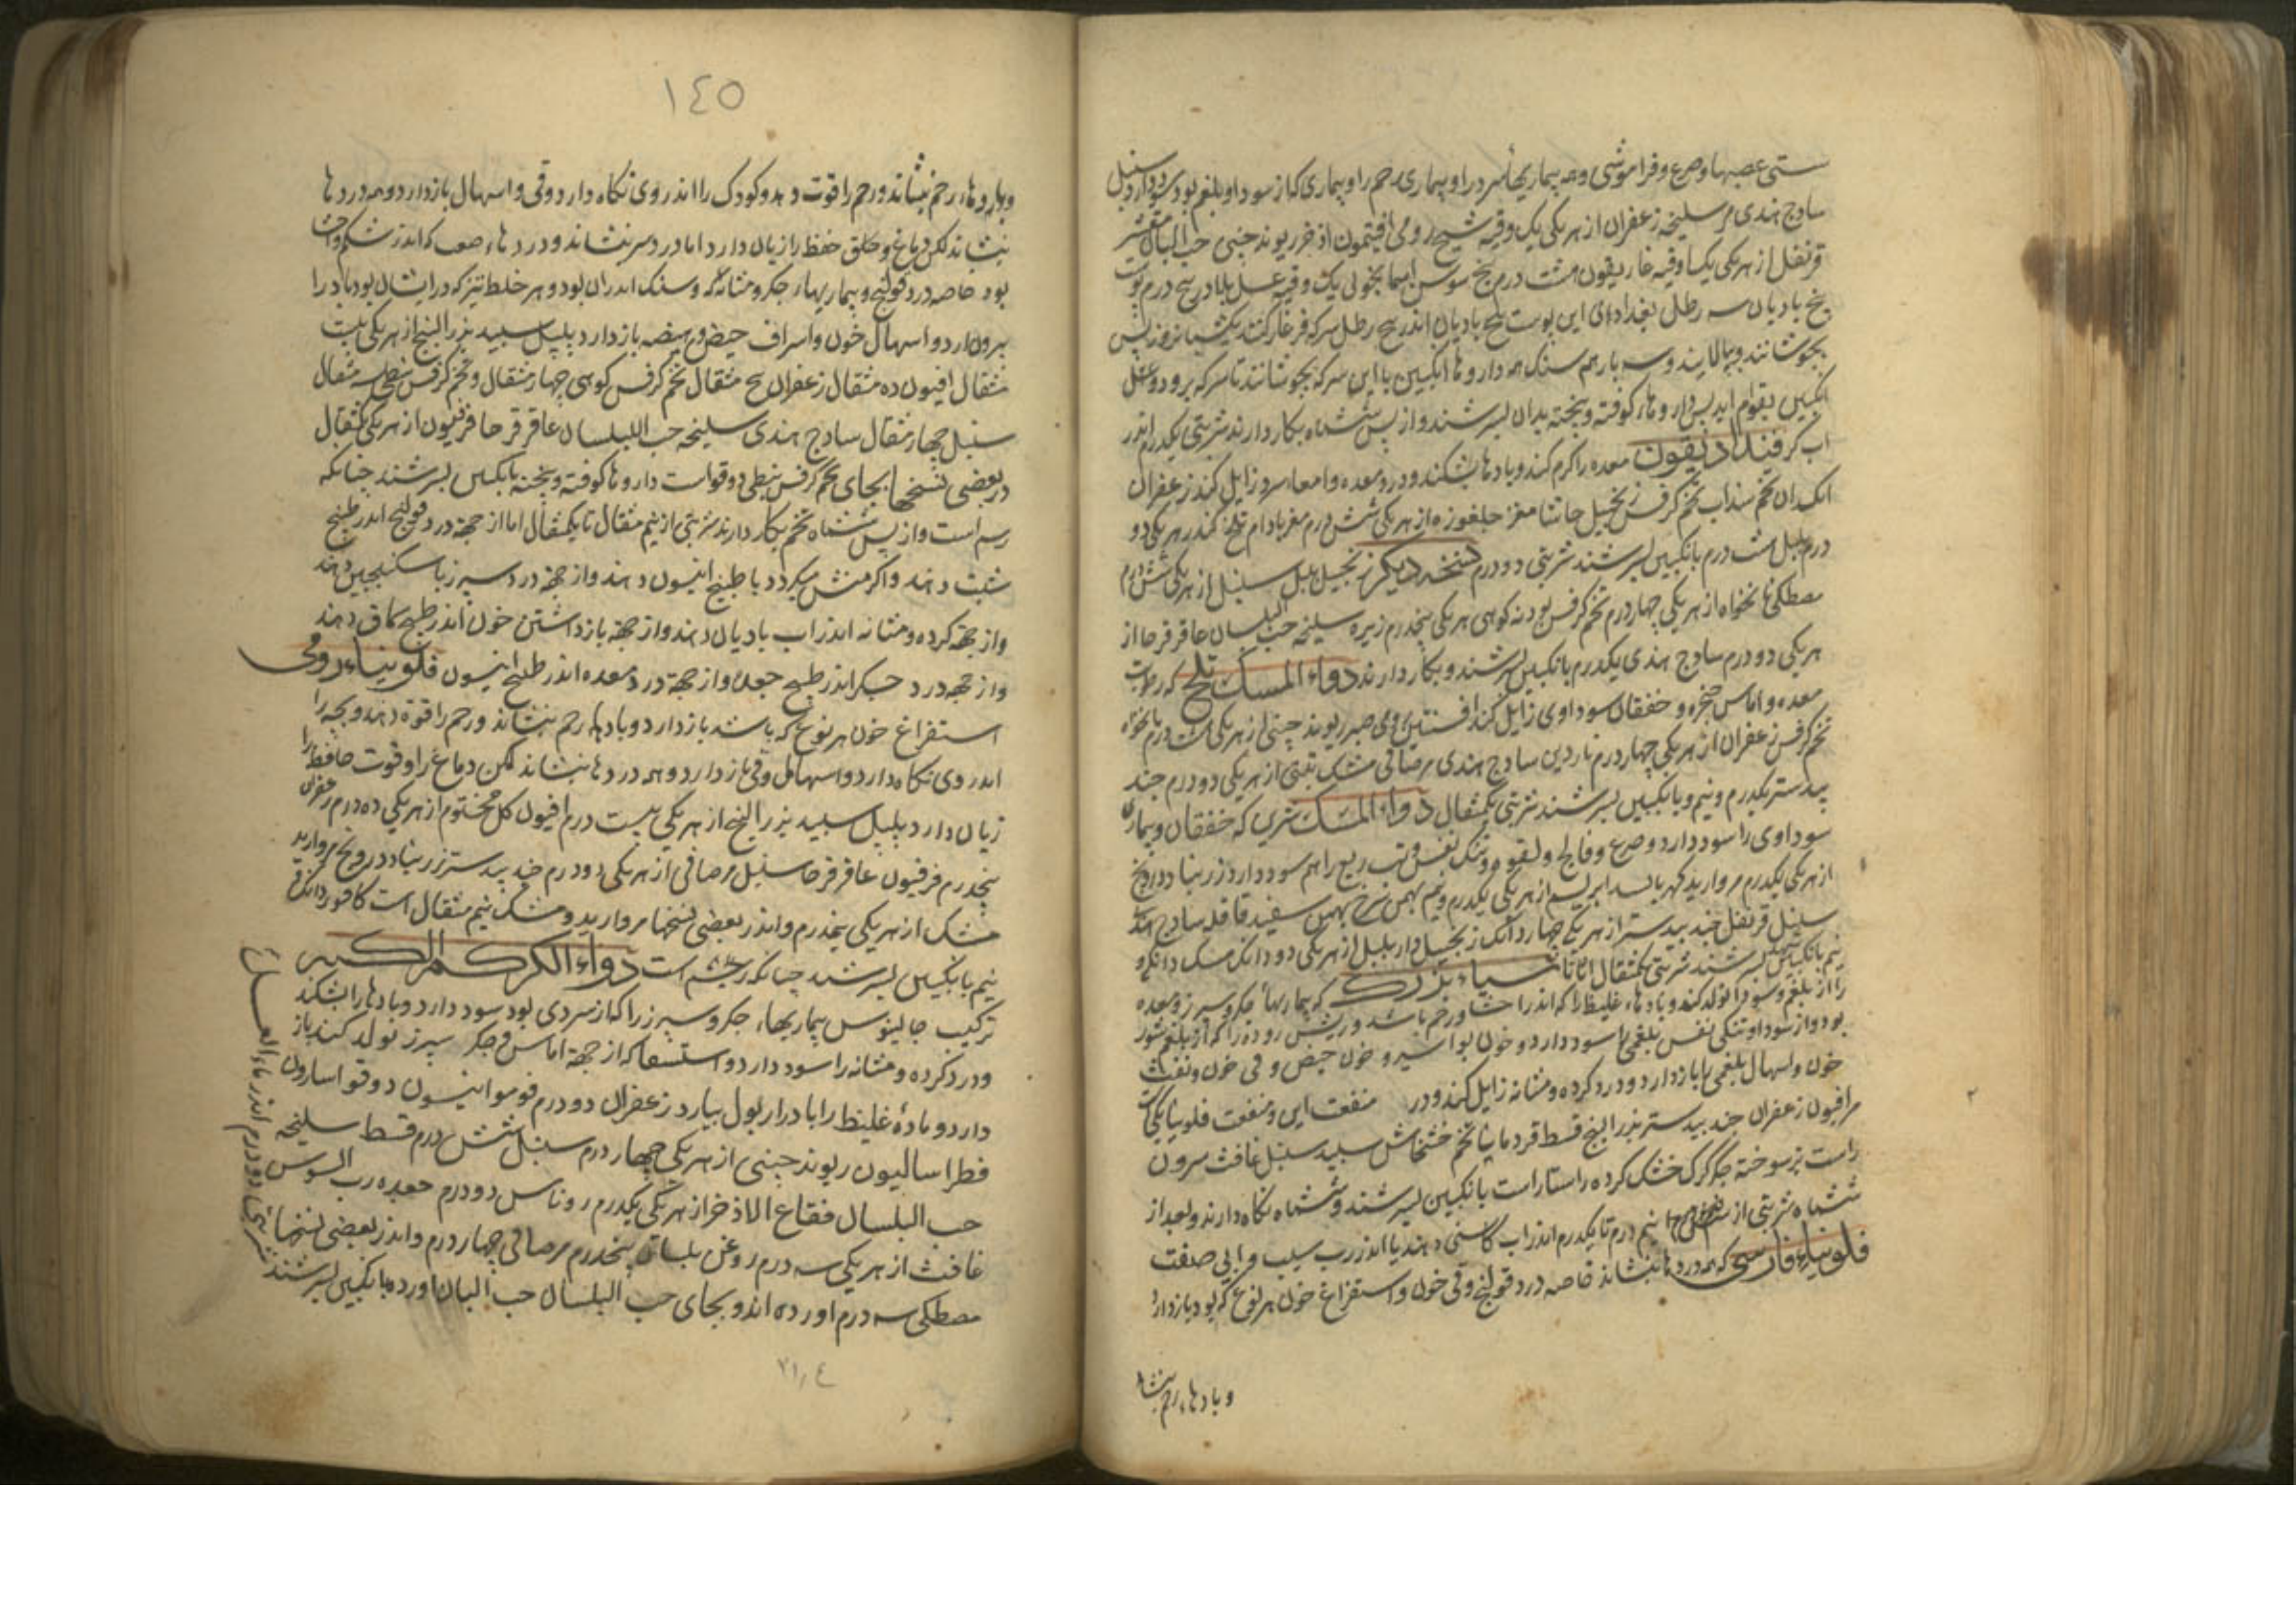 سستی عصبها و صرع و فراموشی و همه بیماریهای سر را و بیماری رحم را و بیماری که از سودا و بلغم بود سود دارد سنبل
سادج هندی مر سلیخه زعفران از هر یکی یک وقیه شیح رومی افیتمون اذخر ریوند چینی حب البان مقشر
قرنفل از هر یکی یکماوقیه غاریقون هشت درم بیخ سوس اسمانجونی یک وقیه عسل بلادر پنج درم پوست
بیخ بادیان سه رطل بغدادی این پوست بیخ بادیان اندر پنج رطل سرکه فرغار کنند یکشبانروز پس
بجوشانند و بپالایند و سه بار هم سنک همه داروها انکبین با این سرکه بجوشانند تا سرکه برود و عسل
انکبین بقوام اید پس داروها کوفته و بیخته بدان بسرشند و از پس ششماه بکار دارند شربتی یکدرم اندر
اب کرفس فندادیقون معده را کرم کند و بادها بشکند و درد معده و امعا سرد زایل کند زعفران
انکدان تخم سذاب تخم کرفس زنجبیل حاشا مغز جلغوزه از هر یکی شش درم مغز بادام تلخ کندر هر یکی دو
درم پلپل هشت درم بانکبین بسرشند شربتی دو درم نسخه دیکر زنجبیل پلپل سنبل از هر یکی شش درم
مصطکی نانخواه از هر یکی چهار درم تخم کرفس پودنه کوهی هر یکی پنجدرم زیره سلیخه حب البلسان عاقرقرحا از
هر یکی دو درم سادج هندی یکدرم بانکبین بسرشند و بکار دارند دواء المسک تلخ که رطوبت
معده و اماس حنجره و خفقان سوداوی زایل کند افسنتین رومی صبر ریوند چینی از هر یکی هشت درم نانخواه
تخم کرفس زعفران از هر یکی چهار درم ناردین سادج هندی مر صافی مشک تبتی از هر یکی دو درم جند
بیدستر یکدرم و نیم و بانکبین بسرشند شربتی یکمثقال دواء المسک شیرین که خفقان و بیماری
سوداوی را سود دارد و صرع و فالج و لقوه و تنک نفس و تب ربع را هم سود دارد زرنباد درونج
از هر یکی یکدرم مروارید کهربا بسد ابریشم از هر یکی یکدرم و نیم بهمن سرخ بهمن سفید قاقله سادج هندی
سنبل قرنفل جند بیدستر از هر یکی چهار دانک زنجبیل دارپلپل از هر یکی دو دانک مشک دانکی و
نیم بانکبین بسرشند شربتی یکمثقال اثاناسیاء بزرک که بیماریهای جکر و سپرز و معده
را از بلغم و سودا تولد کند و بادهاء غلیظ را که اندر احشا و رحم باشد و ریش روده را که از بلغم شور
بود و از سودا و تنکی نفس بلغمی را سود دارد و خون بواسیر و خون حیض و قی خون و نفث
خون و اسهال بلغمی را بازدارد و درد کرده و مثانه زایل کند و در منفعت این و منفعت فلونیا یکیست
مر افیون زعفران جند بیدستر بزر البنج قسط قردمانا تخم خشخاش سپید سنبل غافث سرون
راست بز سوخته جکر کرک خشک کرده راستا راست بانکبین بسرشند و ششماه نکاه دارند و بعد از
ششماه شربتی از نیم درم تا یکدرم اندر اب کاسنی دهند یا اندر رب سیب و ابی صفت
فلونیاء فارسی که همه دردها بنشاند خاصه درد قولنج و قی خون و استفراغ خون هر نوع که بود بازدارد
و بادهاء رحم بنشاند
١٤٥
و بادهاء رحم بنشاند و رحم را قوت دهد و کودک را اندر وی نکاه دارد و قی و اسهال بازدارد و همه دردها
بنشاند لکن دماغ و خلق حفظ را زیان دارد اما درد سر بنشاند و دردهاء صعب که اندر شکم و احشا
بود خاصه درد قولنج و بیماریهاء جکر و مثانه که و سنک اندران بود و هر خلط تیز که در ایشان بود باد را
بیرون ارد و اسهال خون و اسراف حیض و هیضه بازدارد پلپل سپید بزر البنج از هر یکی بیست
مثقال افیون ده مثقال زعفران پنج مثقال تخم کرفس کوهی چهار مثقال و تخم کرفس نبطی سه مثقال
سنبل چهار مثقال سادج هندی سلیخه حب البلسان عاقرقرحا فرفیون از هر یکی یکمثقال
در بعضی نسخها بجای تخم کرفس نبطی دوقو است داروها کوفته و بیخته بانکبین بسرشند چنانکه
رسم است و از پس ششماه بکار دارند شربتی از نیم مثقال تا یکمثقال اما از جهة درد قولنج اندر طبیخ
شبت دهند و اکر منش میکردد با طبیخ انیسون دهند و از جهة درد سپرز با سکنجبین دهند
و از جهة کرده و مثانه اندر اب بادیان دهند و از جهة بازداشتن خون اندر طبیخ سماق دهند
و از جهة درد جکر اندر طبیخ جعده و از جهة درد معده اندر طبیخ انیسون فلونیاء رومی
استفراغ خون هر نوع که باشد بازدارد و بادهاء رحم بنشاند و رحم را قوة دهد و بچه را
اندر وی نکاه دارد و اسهال و قی بازدارد و همه دردها بنشاند لکن دماغ را و قوت حافظه را
زیان دارد پلپل سپید بزر البنج از هر یکی بیست درم افیون کل مختوم از هر یکی ده درم زعفران
پنجدرم فرفیون عاقرقرحا سنبل مر صافی از هر یکی دو درم جند بیدستر زرنباد درونج مروارید
مشک از هر یکی نیمدرم و اندر بعضی نسخها مروارید و مشک نیم مثقال است کافور دانکی و
نیم بانکبین بسرشند چنانکه رسم است دواء الکرکم الکبیر
ترکیب جالینوس بیماریهاء جکر و سپرز را که از سردی بود سود دارد و بادها را بشکند
و درد کرده و مثانه را سود دارد و استسقا که از جهة اماس جکر و سپرز تولد کند باز
دارد و مادهٔ غلیظ را با درار بول بیارد زعفران دو درم فو مو انیسون دوقو اسارون
فطراسالیون ریوند چینی از هر یکی چهار درم سنبل شش درم قسط سلیخه
حب البلسان فقاع الاذخر از هر یکی یکدرم روناس دو درم جعده رب السوس
غافث از هر یکی سه درم روغن بلسان پنجدرم مر صافی چهار درم و اندر بعضی نسخها
مصطکی سه درم اورده اند و بجای حب البلسان حب البان اورده بانکبین بسرشند
شربتی دو درم اندر ماء العسل